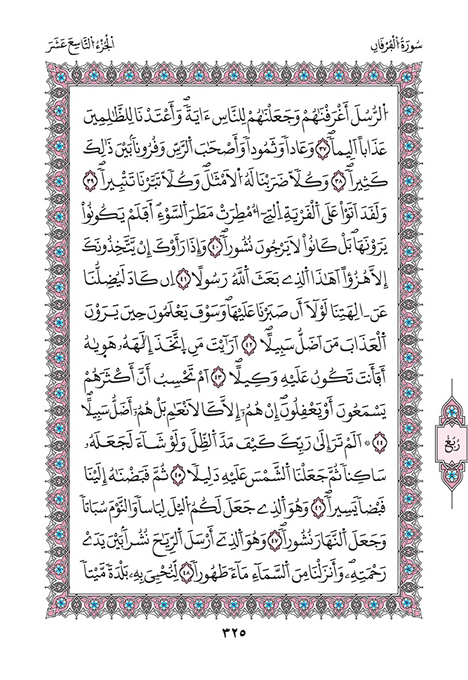 سُورَةُ اُ۬لْفُرْقَانِ
اَ۬لْجُزْءُ اُ۬لتَّاسِعَ عَشَرَ
اَ۬لرُّسُلَ أَغْرَقْنَٰهُمْ وَجَعَلْنَٰهُمْ لِلنَّاسِ ءَايَةٗۖ وَأَعْتَدْنَا لِلظَّٰلِمِينَ
عَذَاباً اَلِيماٗۖ ٣٧ وَعَاداٗ وَثَمُوداٗ وَأَصْحَٰبَ اَ۬لرَّسِّ وَقُرُوناَۢ بَيْنَ ذَٰلِكَ
كَثِيراٗۖ ٣٨ وَكُلّاٗ ضَرَبْنَا لَهُ اُ۬لَامْثَٰلَۖ وَكُلّاٗ تَبَّرْنَا تَتْبِيراٗۖ ٣٩
وَلَقَدَ اَتَوْاْ عَلَى اَ۬لْقَرْيَةِ اِ۬لتِےٓ أُمْطِرَتْ مَطَرَ اَ۬لسَّوْءِۖ اَفَلَمْ يَكُونُواْ
يَرَوْنَهَاۖ بَلْ كَانُواْ لَا يَرْجُونَ نُشُوراٗۖ ٤٠ وَإِذَا رَأَوْكَ إِنْ يَّتَّخِذُونَكَ
إِلَّا هُزُؤاًۖ اَهَٰذَا اَ۬لذِے بَعَثَ اَ۬للَّهُ رَسُولاًۖ ٤١ اِن كَادَ لَيُضِلُّنَا
عَنَ اٰلِهَتِنَا لَوْلَآ أَن صَبَرْنَا عَلَيْهَاۖ وَسَوْفَ يَعْلَمُونَ حِينَ يَرَوْنَ
اَ۬لْعَذَابَ مَنَ اَضَلُّ سَبِيلاًۖ ٤٢ اَرَٰٓيْتَ مَنِ اِ۪تَّخَذَ إِلَٰهَهُۥ هَوَيٰهُ
أَفَأَنتَ تَكُونُ عَلَيْهِ وَكِيلاًۖ ٤٣ اَمْ تَحْسِبُ أَنَّ أَكْثَرَهُمْ
يَسْمَعُونَ أَوْ يَعْقِلُونَۖ إِنْ هُمُۥٓ إِلَّا كَالَانْعَٰمِ بَلْ هُمُۥٓ أَضَلُّ سَبِيلاًۖ
٤٤ ۞ اَلَمْ تَرَ إِلَىٰ رَبِّكَ كَيْفَ مَدَّ اَ۬لظِّلَّ وَلَوْ شَآءَ لَجَعَلَهُۥ
سَاكِناٗ ثُمَّ جَعَلْنَا اَ۬لشَّمْسَ عَلَيْهِ دَلِيلاٗۖ ٤٥ ثُمَّ قَبَضْنَٰهُ إِلَيْنَا
قَبْضاٗ يَسِيراٗۖ ٤٦ وَهُوَ اَ۬لذِے جَعَلَ لَكُمُ اُ۬ليْلَ لِبَاساٗ وَالنَّوْمَ سُبَاتاٗ
وَجَعَلَ اَ۬لنَّهَارَ نُشُوراٗۖ ٤٧ وَهُوَ اَ۬لذِےٓ أَرْسَلَ اَ۬لرِّيَٰحَ نُشُراَۢ بَيْنَ يَدَےْ
رَحْمَتِهِۦۖ وَأَنزَلْنَا مِنَ اَ۬لسَّمَآءِ مَآءٗ طَهُوراٗ ٤٨ لِّنُحْـِۧيَ بِهِۦ بَلْدَةٗ مَّيْتاٗ
رُبُع
٣٢٥